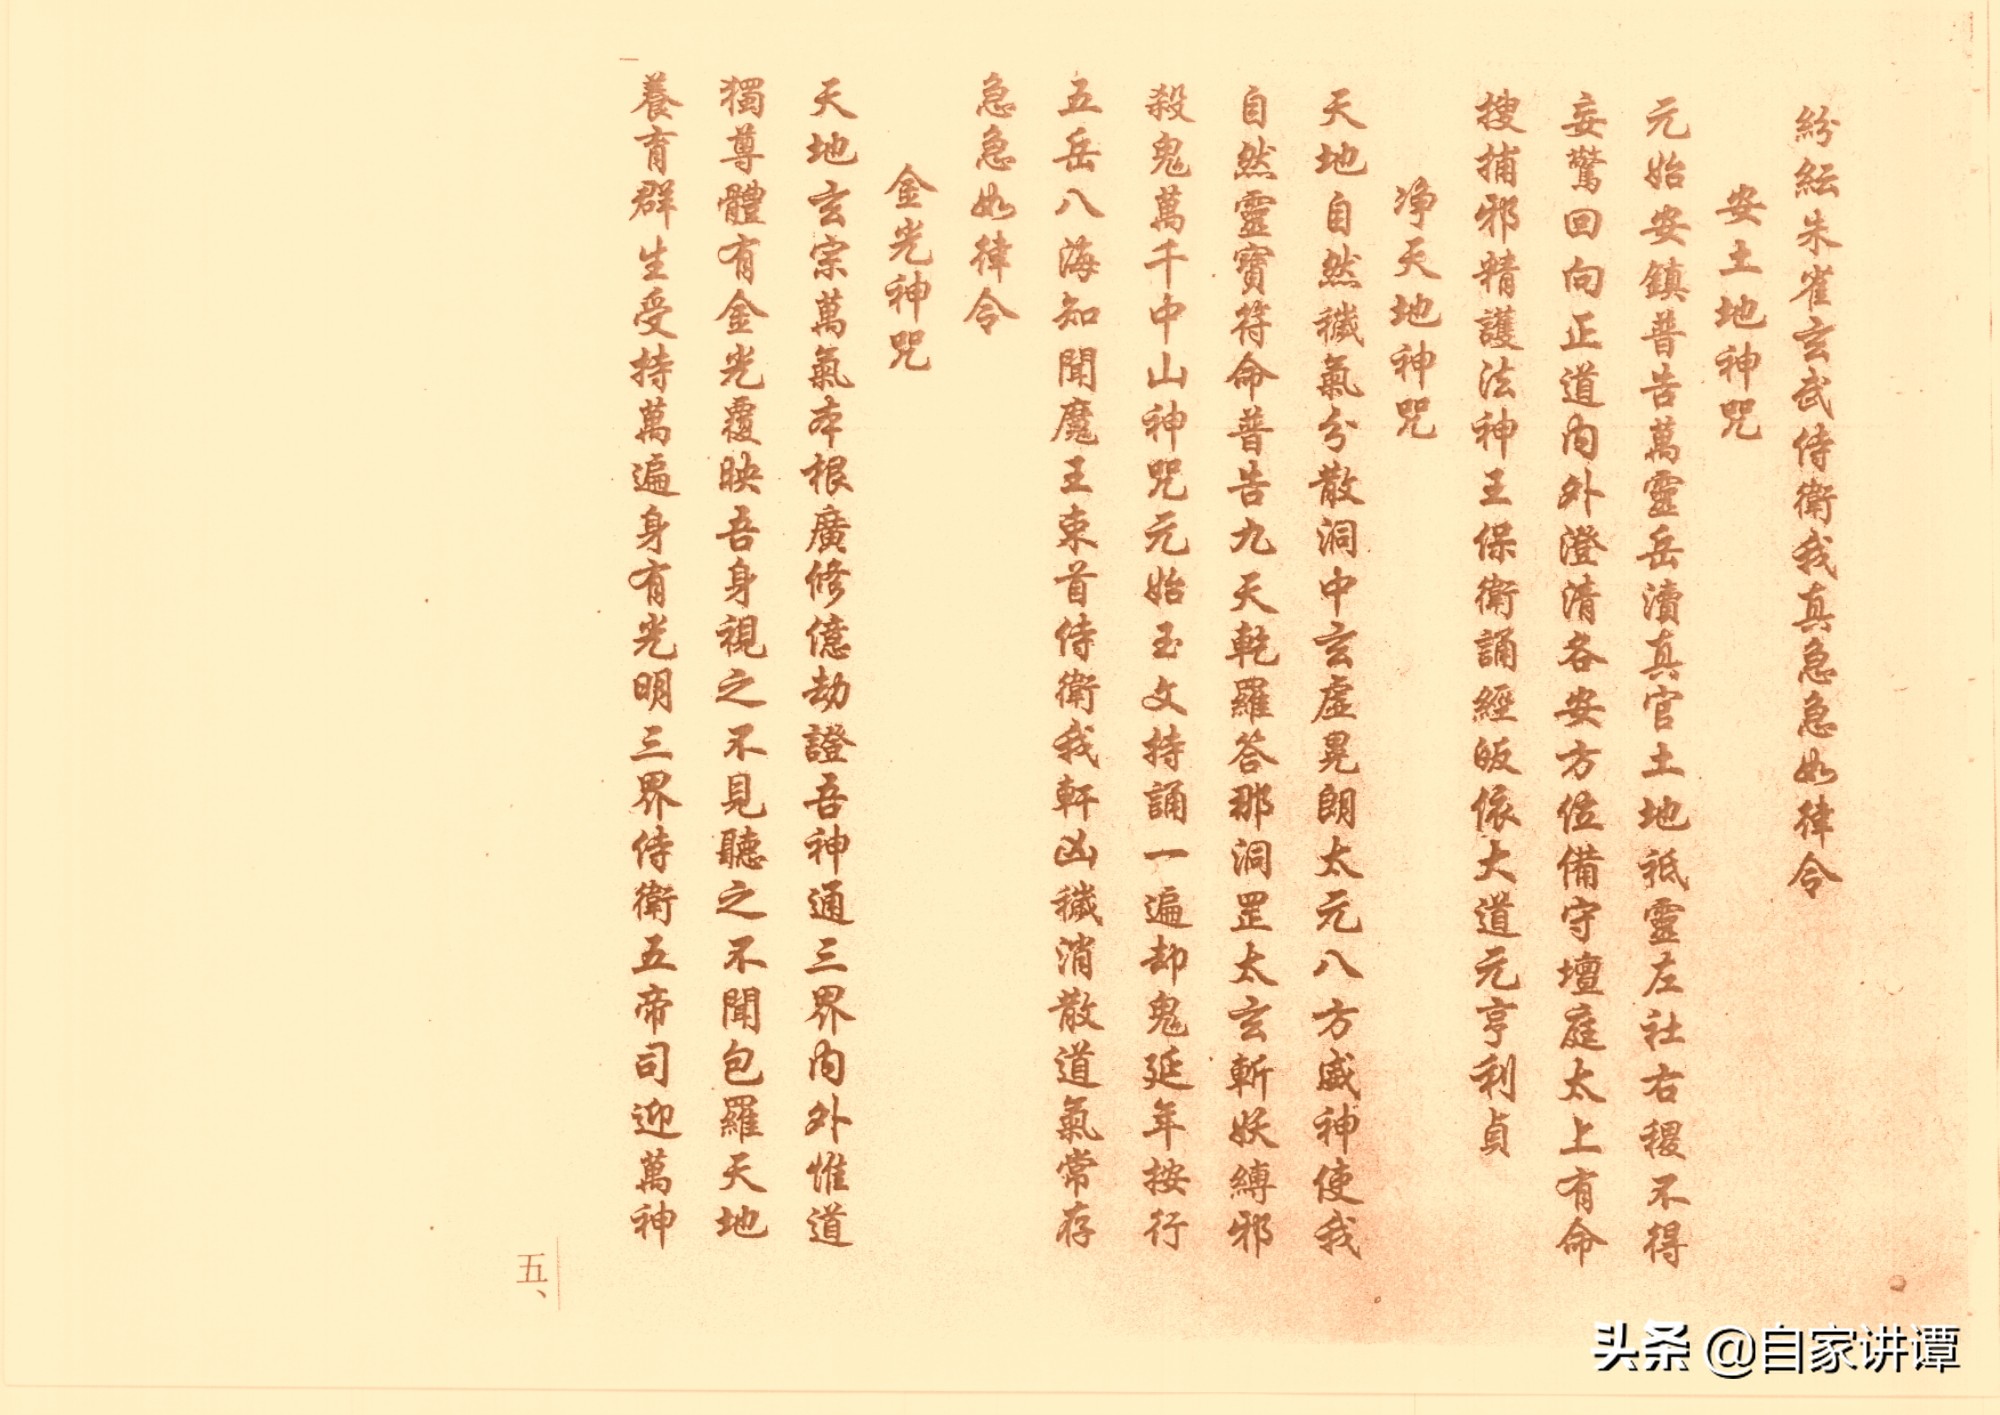 紛紜朱雀玄武侍衛我真急急如律令
安土地神咒
元始安鎮普告萬靈岳瀆真官土地祇靈左社右稷不得
妄驚回向正道內外澄清各安方位備守壇庭太上有命
搜捕邪精護法神王保衛誦經皈依大道元亨利貞
净天地神咒
天地自然穢氣分散洞中玄虛晃朗太元八方威神使我
自然靈寶符命普告九天乾羅答那洞罡太玄斬妖縛邪
殺鬼萬千中山神咒元始玉文持誦一遍却鬼延年按行
五岳八海知聞魔王束首侍衛我軒凶穢消散道氣常存
急急如律令
金光神咒
天地玄宗萬氣本根廣修億劫證吾神通三界內外惟道
獨尊體有金光覆映吾身視之不見聽之不聞包羅天地
養育群生受持萬遍身有光明三界侍衛五帝司迎萬神
五、
头条 @自家讲谭